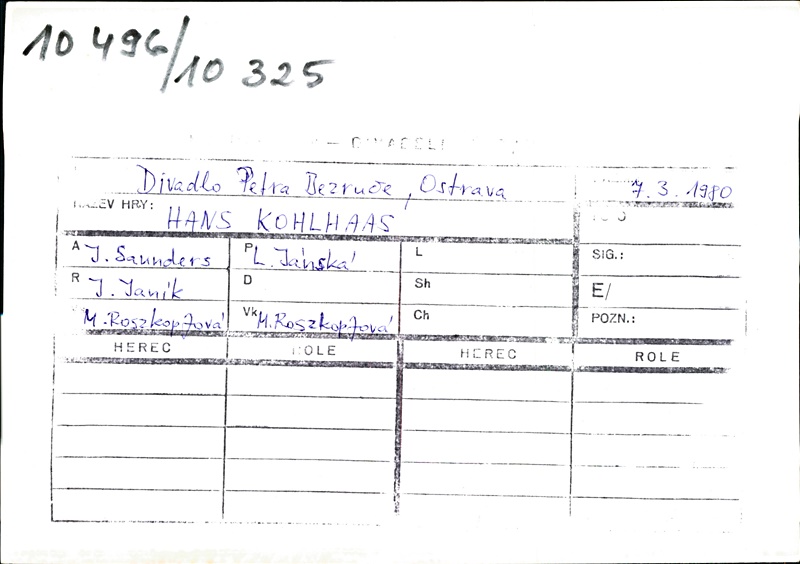 10 496/10 325
Divadlo Petra Bezruče, Ostrava 7. 3. 1980
NÁZEV HRY: HANS KOHLHAAS
A J. Saunders P L. Jánská L SIG.:
R J. Janík D Sh E/
M. Roszkopfová Vk M. Roszkopfová Ch POZN.:
HEREC ROLE HEREC ROLE